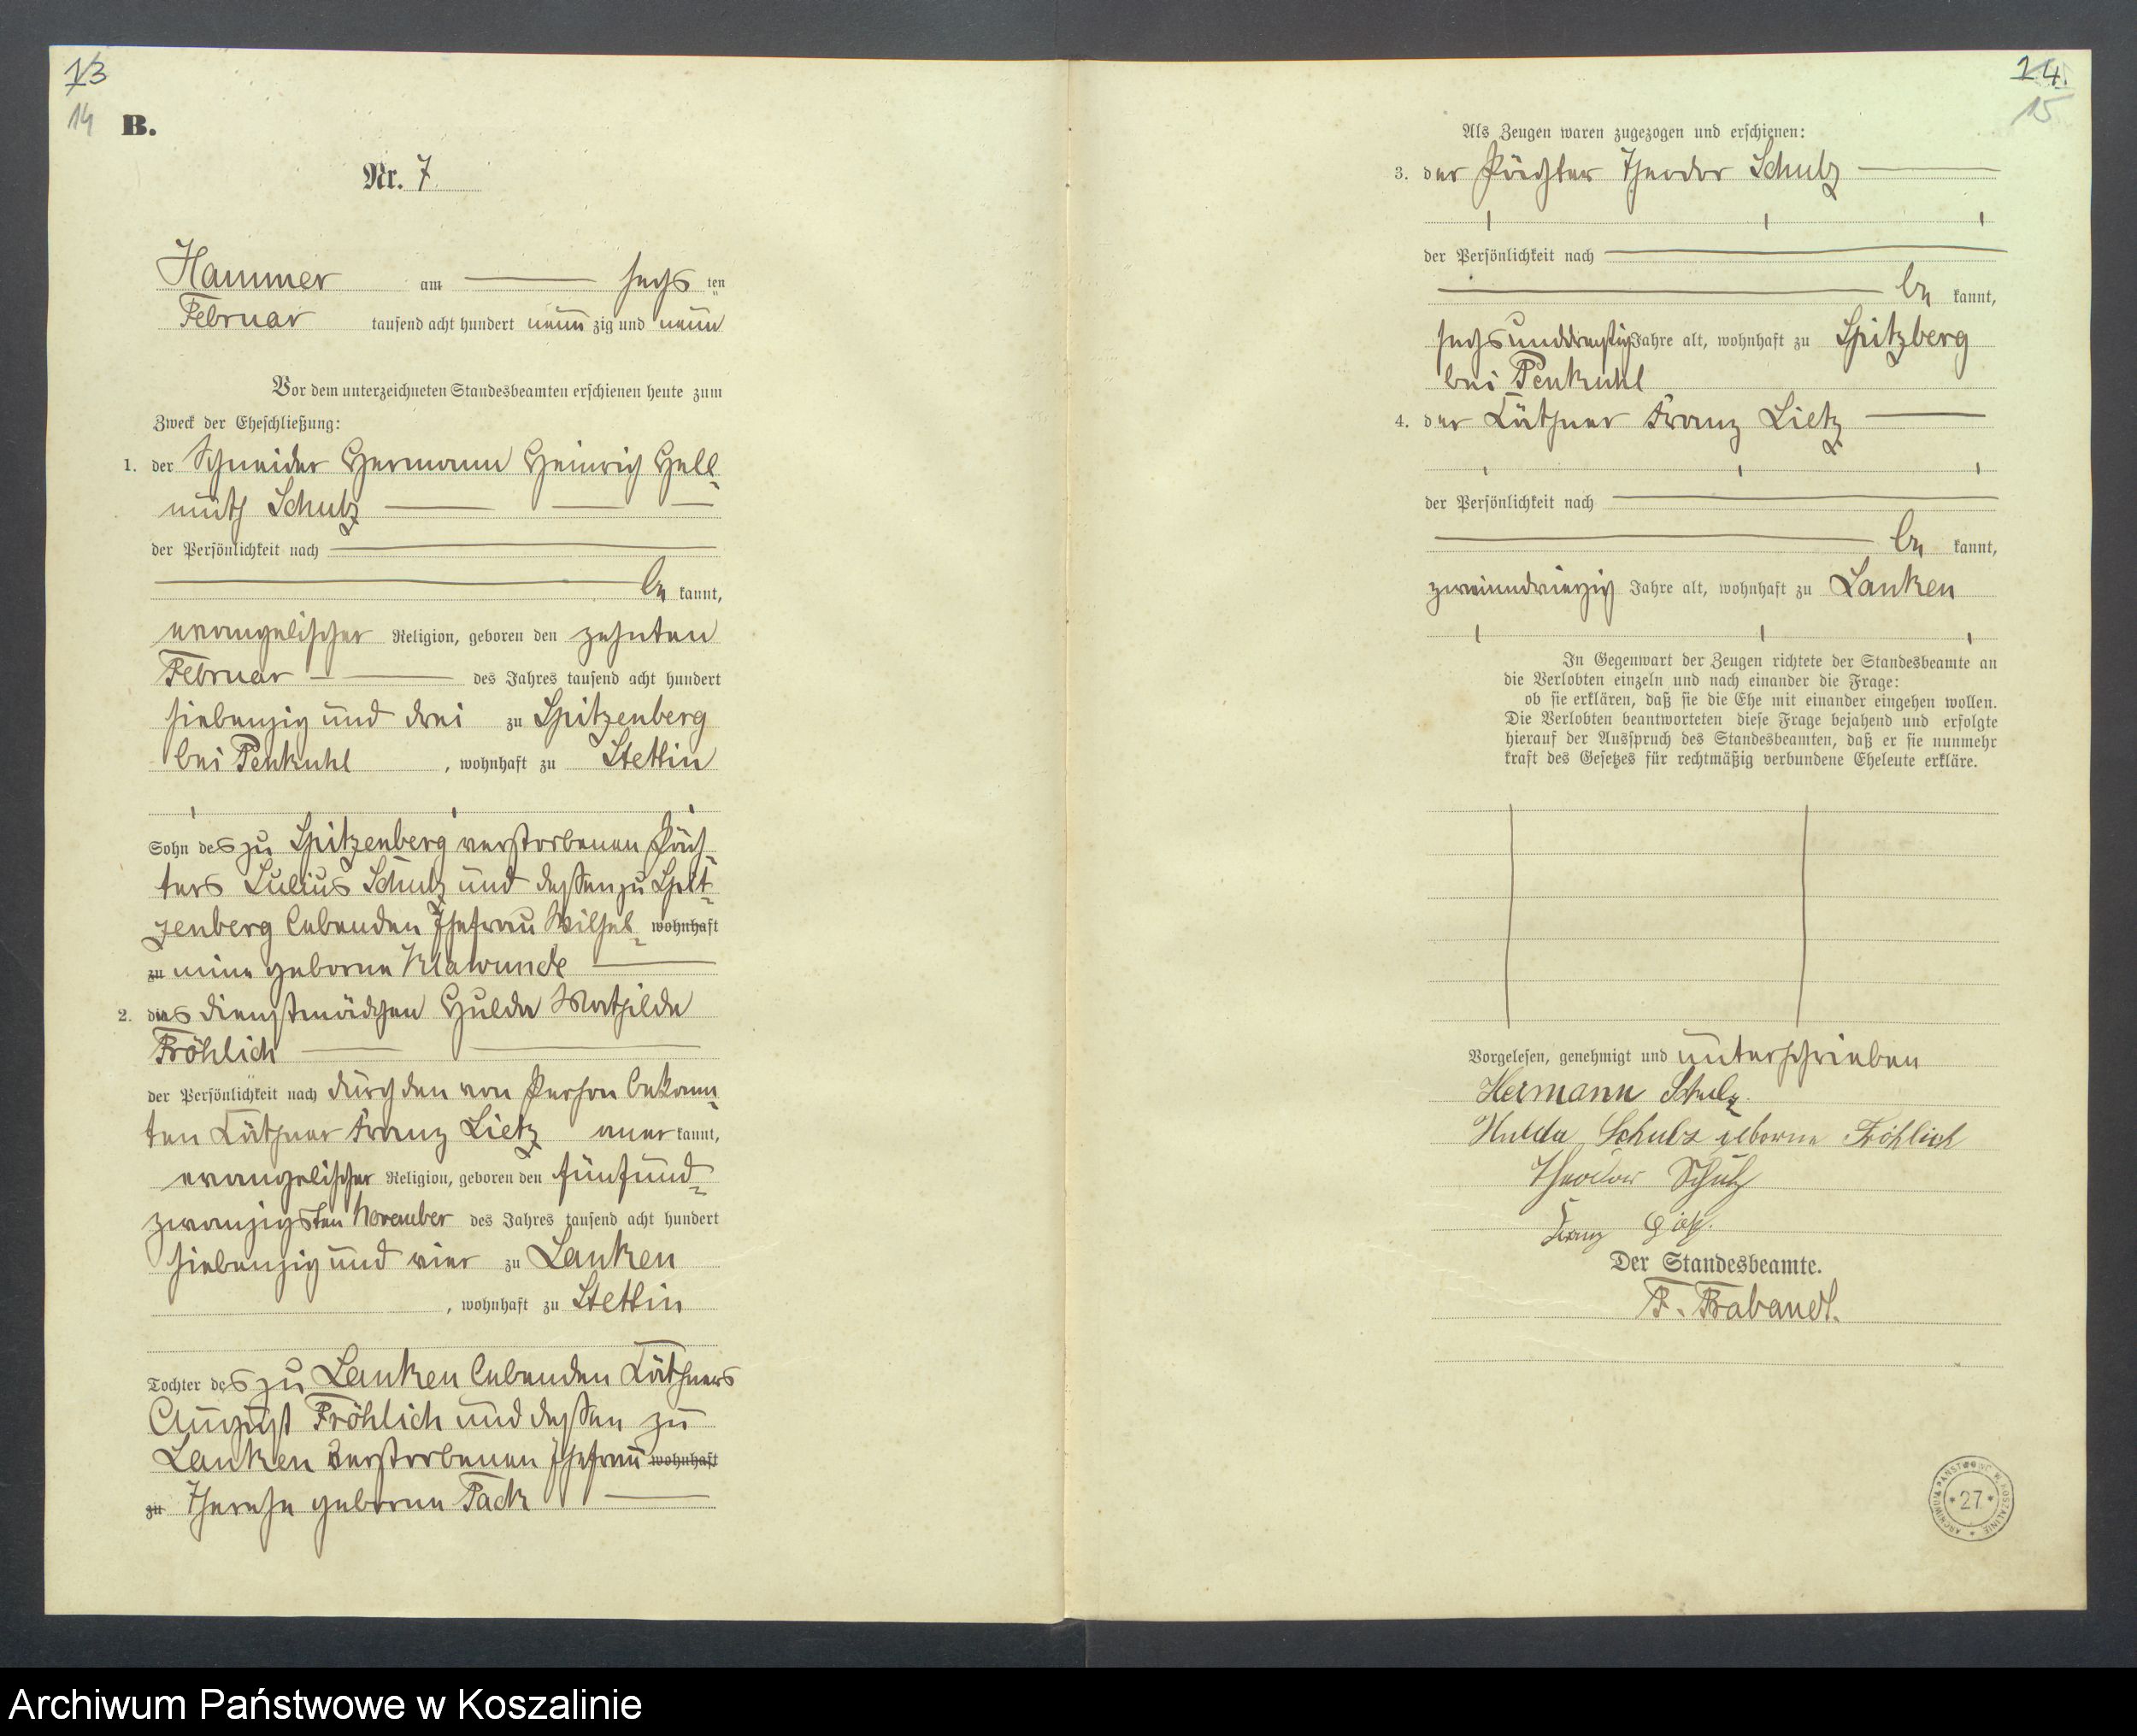 13
14
B.
Nr. 7
Hammer am sechs ten
Februar tausend acht hundert neun zig und neun
Vor dem unterzeichneten Standesbeamten erschienen heute zum
Zweck der Eheschließung:
1. der Schneider Hermann Heinrich Hell-
muth Schulz
der Persönlichkeit nach
be kannt,
evangelischer Religion, geboren den zehnten
Februar des Jahres tausend acht hundert
siebenzig und drei zu Spitzenberg
bei Penkuhl, wohnhaft zu Stettin
Sohn des zu Spitzenberg verstorbenen Päch-
ters Julius Schulz und dessen zu Spit-
zenberg lebenden Ehefrau Wilhel- wohnhaft
zu mine geborne Klawunde
2. das Dienstmädchen Hulda Mathilde
Fröhlich
der Persönlichkeit nach durch den von Person bekann-
ten Käthner Franz Lietz aner kannt,
evangelischer Religion, geboren den fünfund-
zwanzigsten November des Jahres tausend acht hundert
siebenzig und vier zu Lanken
, wohnhaft zu Stettin
Tochter des zu Lanken lebenden Käthners
August Fröhlich und dessen zu
Lanken verstorbenen Ehefrau wohnhaft
zu Therese geborne Tack
14.
15
Als Zeugen waren zugezogen und erschienen:
3. der Pächter Theodor Schulz
der Persönlichkeit nach
be kannt,
sechsunddreißig Jahre alt, wohnhaft zu Spitzberg
bei Penkuhl
4. der Käthner Franz Lietz
der Persönlichkeit nach
be kannt,
zweiundvierzig Jahre alt, wohnhaft zu Lanken
In Gegenwart der Zeugen richtete der Standesbeamte an
die Verlobten einzeln und nach einander die Frage:
ob sie erklären, daß sie die Ehe mit einander eingehen wollen.
Die Verlobten beantworteten diese Frage bejahend und erfolgte
hierauf der Ausspruch des Standesbeamten, daß er sie nunmehr
kraft des Gesetzes für rechtmäßig verbundene Eheleute erkläre.
Vorgelesen, genehmigt und unterschrieben
Hermann Schulz.
Hulda Schulz geborne Fröhlich
Theodor Schulz
Franz Lietz.
Der Standesbeamte.
F. Brabandt.
ARCHIWUM PAŃSTWOWE W KOSZALINIE
* 27 *
Archiwum Państwowe w Koszalinie